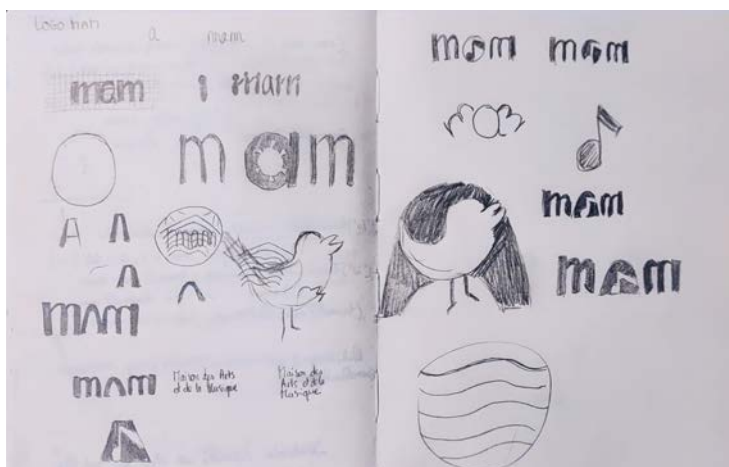 LOGO MAM
a mam
mam
mam
mam
A
mam
mam
mam
Maison des Arts
et de la Musique
Maison des
Arts et de la
Musique
mam mam
mam
mam
mam